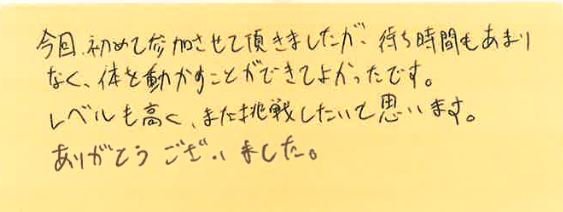 今回、初めて参加させて頂きましたが、待ち時間もあまり
なく、体を動かすことができてよかったです。
レベルも高く、また挑戦したいと思います。
ありがとうございました。